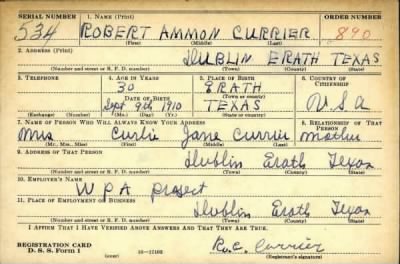 SERIAL NUMBER 1. NAME (Print) ORDER NUMBER
534 ROBERT AMMON CURRIER 890
(First) (Middle) (Last)
2. ADDRESS (Print)
DUBLIN ERATH TEXAS
(Number and street or R. F. D. number) (Town) (County) (State)
3. TELEPHONE 4. AGE IN YEARS 5. PLACE OF BIRTH 6. COUNTRY OF CITIZENSHIP
30 ERATH
DATE OF BIRTH (Town or county)
Sept 9th 1910 TEXAS U.S.A
(Exchange) (Number) (Mo.) (Day) (Yr.) (State or country)
7. NAME OF PERSON WHO WILL ALWAYS KNOW YOUR ADDRESS 8. RELATIONSHIP OF THAT PERSON
Mrs Curlie Jane Currier mother
(Mr., Mrs., Miss) (First) (Middle) (Last)
9. ADDRESS OF THAT PERSON
Dublin Erath Texas
(Number and street or R. F. D. number) (Town) (County) (State)
10. EMPLOYER'S NAME
WPA project
11. PLACE OF EMPLOYMENT OR BUSINESS
Dublin Erath Texas
(Number and street or R. F. D. number) (Town) (County) (State)
I AFFIRM THAT I HAVE VERIFIED ABOVE ANSWERS AND THAT THEY ARE TRUE.
REGISTRATION CARD
D. S. S. Form 1 (over) Currier
(Registrant's signature)